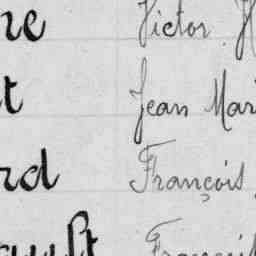 ne Victor H
t Jean Mari
rd François
ault François